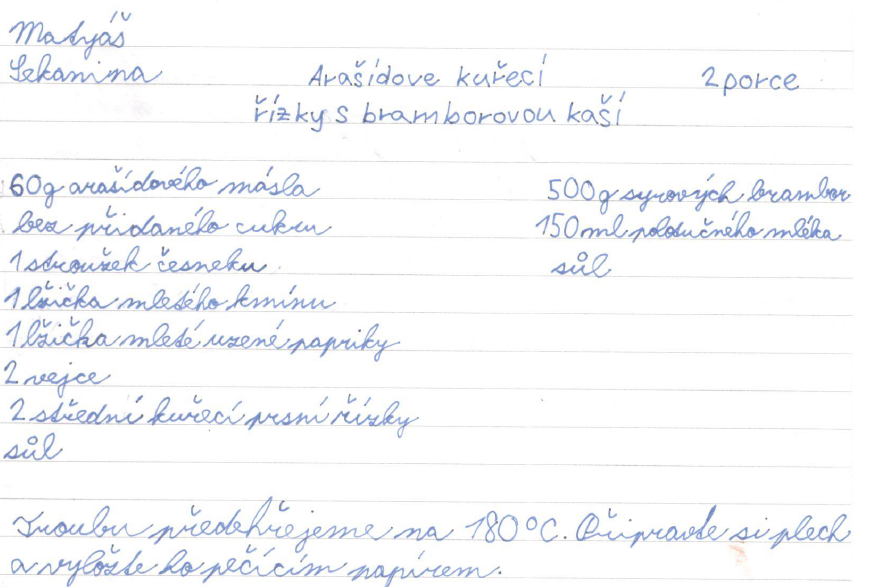 Matyáš
Sekanina
Arašídove kuřecí
2 porce
řízky s bramborovou kaší
60g arašídového másla
bez přidaného cukru
1 stroužek česneku
1 lžička mletého kmínu
1 lžička mleté uzené papriky
2 vejce
2 střední kuřecí prsní řízky
sůl
500g syrových brambor
150ml polotučného mléka
sůl
Troubu předehřejeme na 180°C. Připravte si plech
a vyložte ho pečícím papírem.